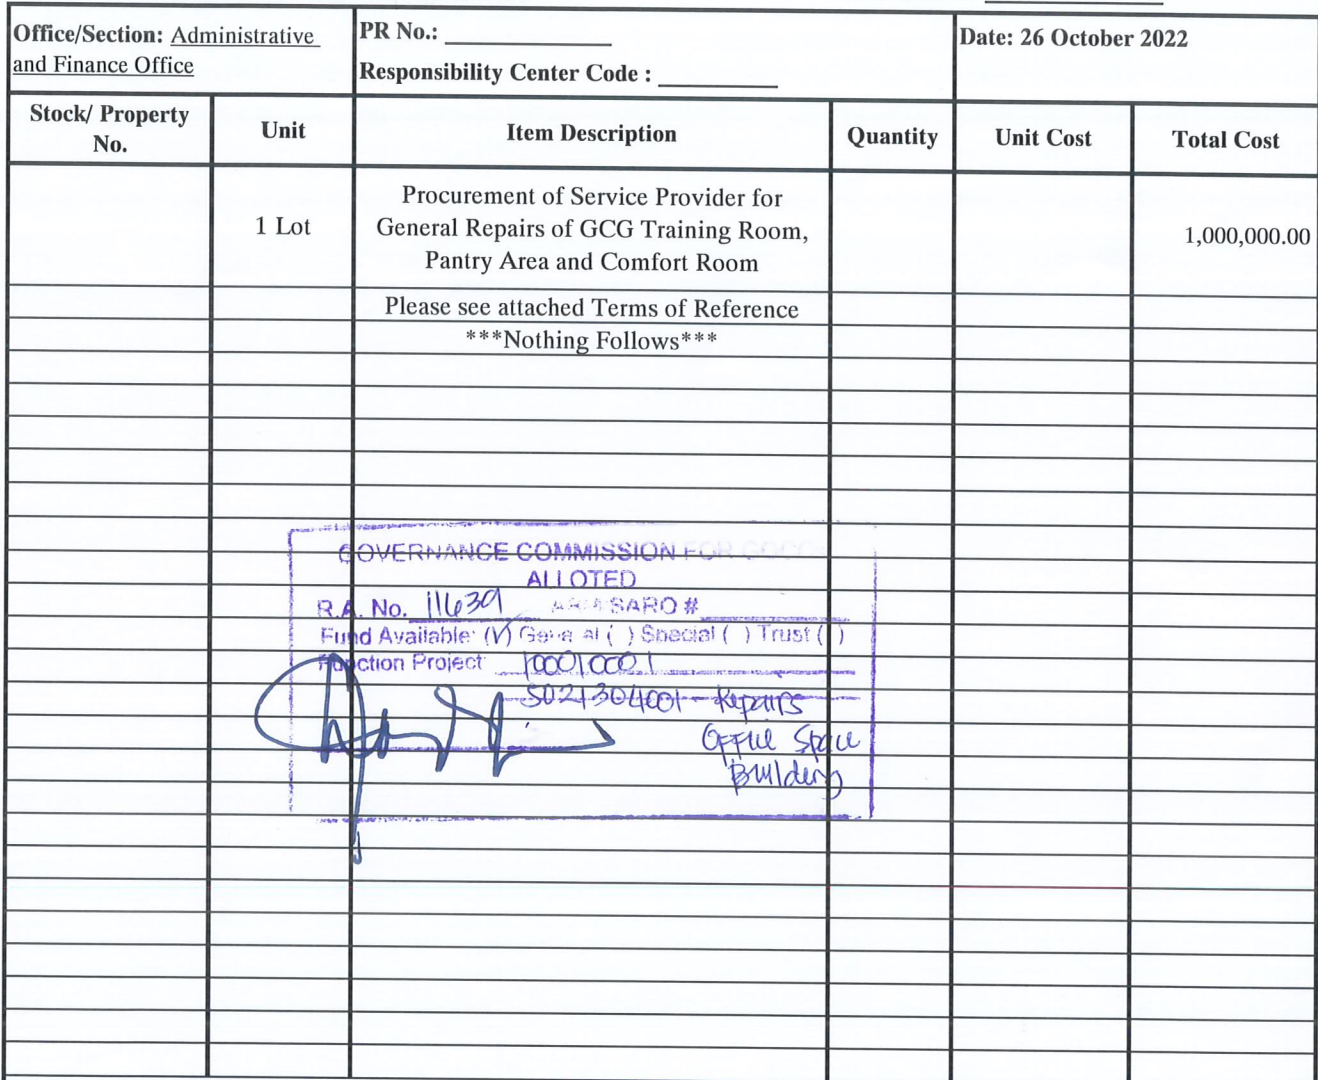 Office/Section: Administrative
and Finance Office
PR No.:
Responsibility Center Code :
Date: 26 October 2022
Stock/ Property
No.
Unit
Item Description
Quantity
Unit Cost
Total Cost
1 Lot
Procurement of Service Provider for
General Repairs of GCG Training Room,
Pantry Area and Comfort Room
1,000,000.00
Please see attached Terms of Reference
***Nothing Follows***
GOVERNANCE COMMISSION FOR
ALLOTED
R.A. No. 11639 SARO #
Fund Available: (√) General ( ) Special ( ) Trust ( )
Function Project 100010001
5021304001 - Repairs
Office Space
Building